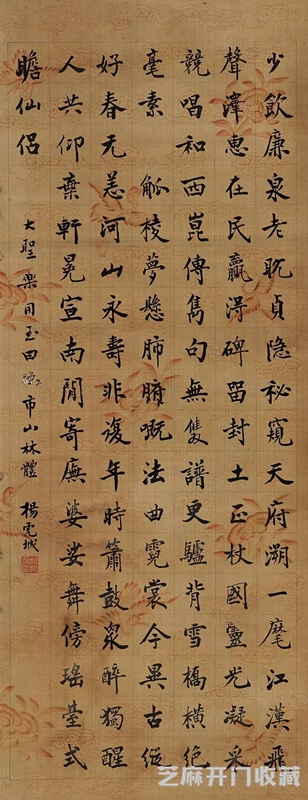 少飲廉泉老耽貞隱秘窺天府溯一麾江漢飛
聲澤惠在民贏得碑留封土正杖國靈光凝采
競唱和西崑傳雋句無雙譜更驢背雪橋橫絕
毫素觚棱夢懸肺腑嘅法曲霓裳今異古縱
好春无恙河山永壽非復年時簫鼓衆醉獨醒
人共仰棄軒冕宣南閒寄廡婆娑舞傍瑤臺式
瞻仙侶
大聖樂用玉田市山林體 楊虎城
芝麻开门收藏